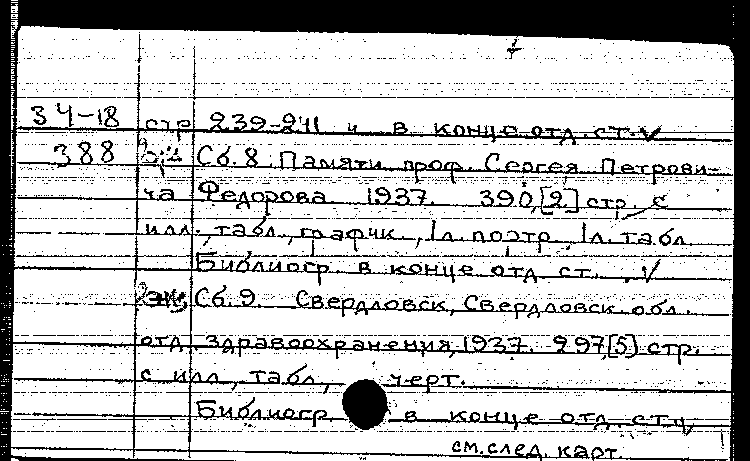 34-18 стр 239-241 и в конце отд. ст.
388 Сб. 8. Памяти проф. Сергея Петрови-
ча Федорова 1937. 390,[2] стр. с
илл., табл., график., 1л. портр, 1л. табл.
Библиогр. в конце отд ст.
2экз Сб. 9. Свердловск, Свердловск. обл.
отд. здравоохранения, 1937. 297,[5] стр.
с илл., табл., черт.
Библиогр. в конце отд ст.
см. след. карт.